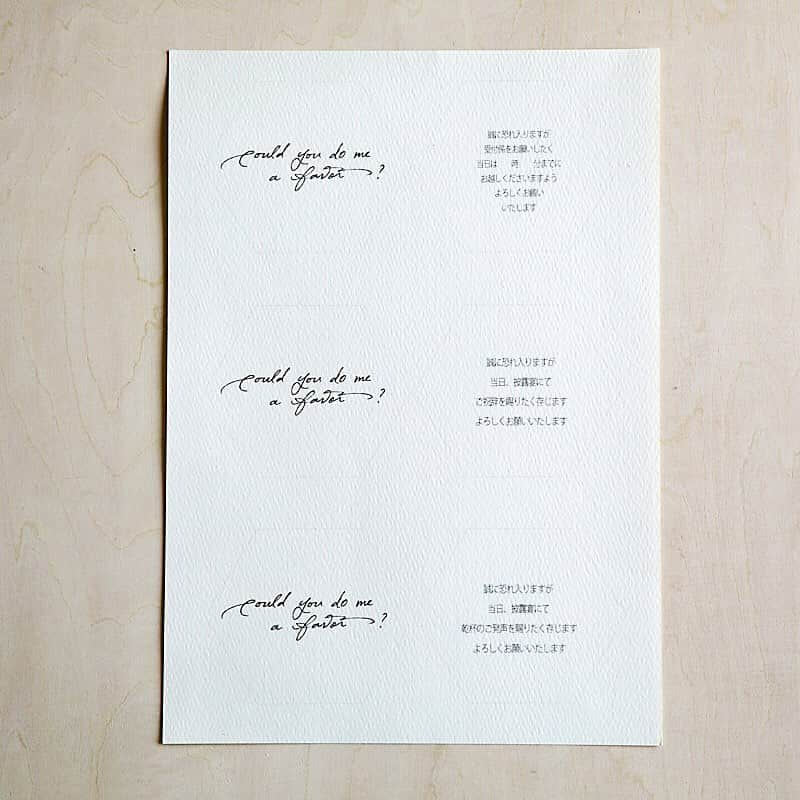 Could you do me
a favor?
誠に恐れ入りますが
受付係をお願いしたく
当日は 時 分までに
お越しくださいますよう
よろしくお願い
いたします
Could you do me
a favor?
誠に恐れ入りますが
当日、披露宴にて
ご祝辞を賜りたく存じます
よろしくお願いいたします
Could you do me
a favor?
誠に恐れ入りますが
当日、披露宴にて
乾杯のご発声を賜りたく存じます
よろしくお願いいたします